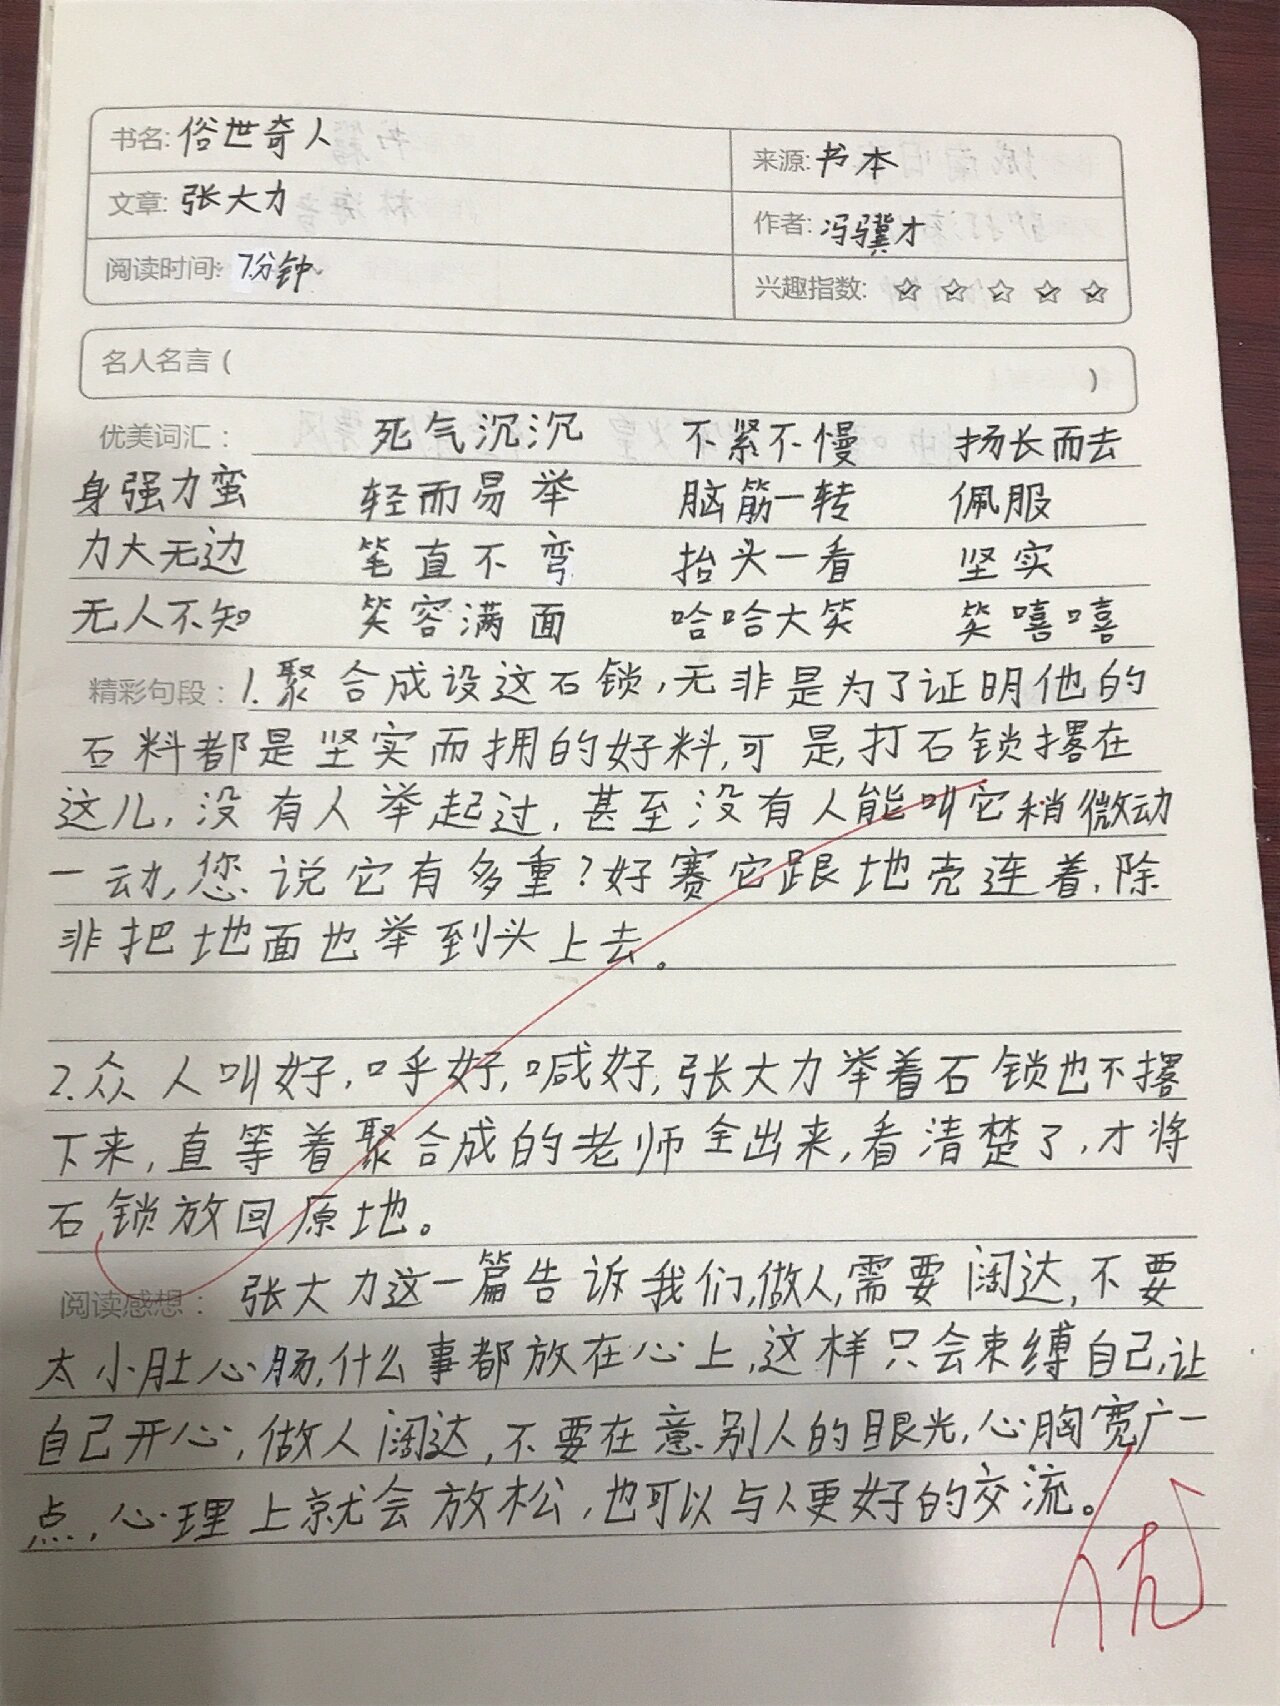 书名: 俗世奇人
来源: 书本
文章: 张大力
作者: 冯骥才
阅读时间: 7分钟
兴趣指数: ☆ ☆ ☆ ☆ ☆
名人名言 ( )
优美词汇: 死气沉沉 不紧不慢 扬长而去
身强力蛮 轻而易举 脑筋一转 佩服
力大无边 笔直不弯 抬头一看 坚实
无人不知 笑容满面 哈哈大笑 笑嘻嘻
精彩句段: 1.聚合成设这石锁,无非是为了证明他的
石料都是坚实而拥的好料,可是,打石锁撂在
这儿,没有人举起过,甚至没有人能叫它稍微动
一动,您说它有多重?好赛它跟地壳连着,除
非把地面也举到头上去。
2.众人叫好,呼好,喊好,张大力举着石锁也不撂
下来,直等着聚合成的老师全出来,看清楚了,才将
石锁放回原地。
阅读感想: 张大力这一篇告诉我们,做人,需要阔达,不要
太小肚心肠,什么事都放在心上,这样只会束缚自己,让
自己开心,做人阔达,不要在意别人的眼光,心胸宽广一
点,心理上就会放松,也可以与人更好的交流。
优